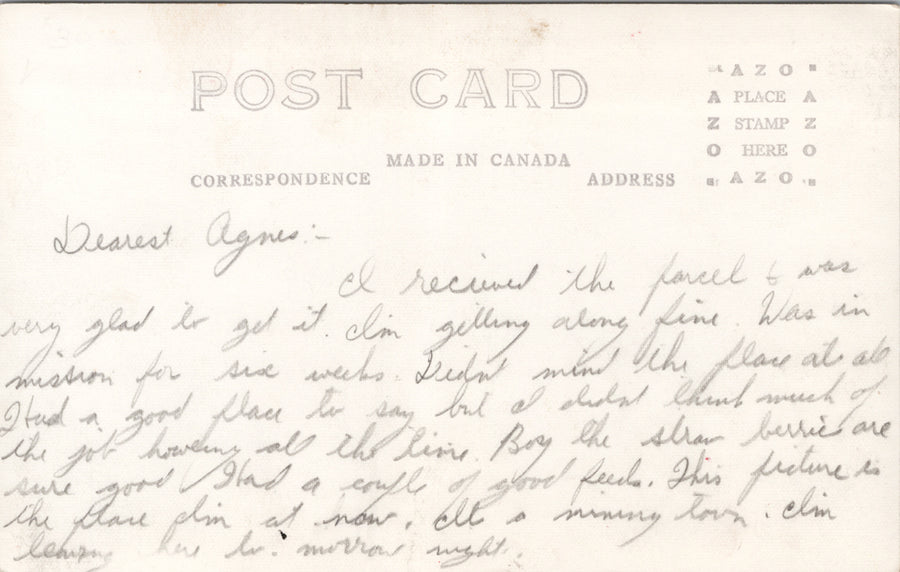 POST CARD
MADE IN CANADA
CORRESPONDENCE
ADDRESS
A Z O
A PLACE A
Z STAMP Z
O HERE O
A Z O
Dearest Agnes:-
I recieved the parcel & was
very glad to get it. I'm getting along fine. Was in
mission for six weeks. Didn't mind the place at all
Had a good place to say but I didnt think much of
the job all the time. Boy the straw berries are
sure good Had a couple of good feeds. This picture is
the place I'm at now. It a mining town. I'm
leaving here to. morrow night.